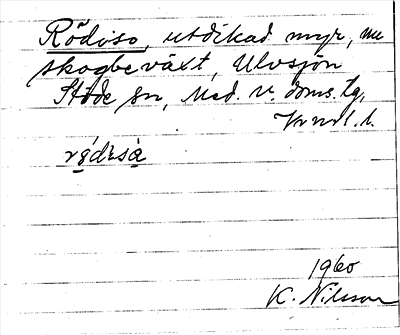 Rödöso, utdikad myr, nu
skogbeväxt, Ulvsjön
Stöde sn, Med. v. doms. tg,
l.
rödəsə
1960
K. Nilsson